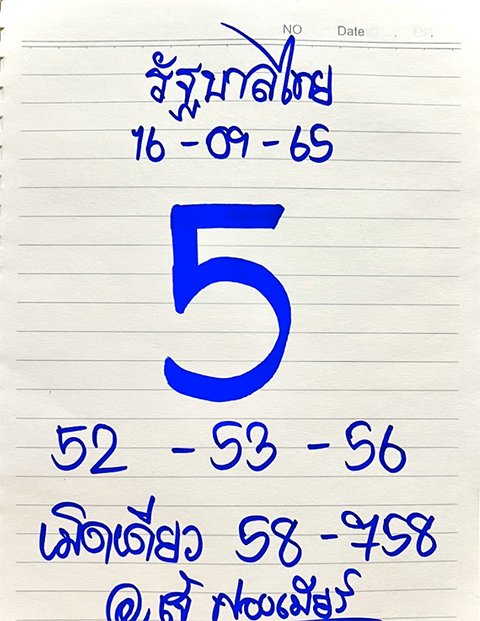 NO Date
รัฐบาลไทย
16-09-65
5
52 - 53 - 56
เม็ดเดียว 58-758